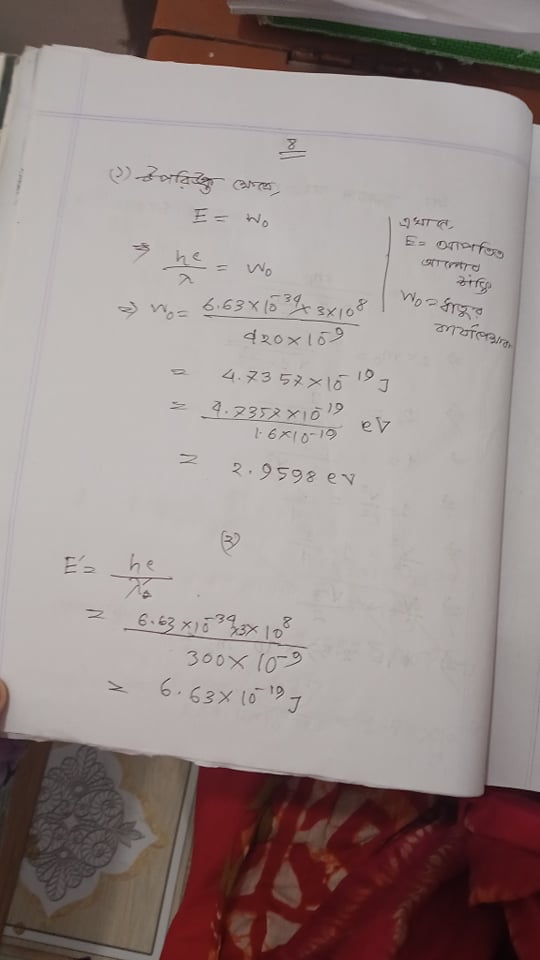 8
(১) উপরিউক্ত থেকে,
E = W₀
⇒ hc/λ = W₀
⇒ W₀ = 6.63×10⁻³⁴×3×10⁸ / 420×10⁻⁹
= 4.7357×10⁻¹⁹ J
= 4.7357×10⁻¹⁹ / 1.6×10⁻¹⁹ eV
= 2.9598 eV
এখানে,
E = আপতিত
আলোর
শক্তি
W₀ = ধাতুর
কার্যাপেক্ষক
(২)
E′ = hc/λ′
= 6.63×10⁻³⁴×3×10⁸ / 300×10⁻⁹
= 6.63×10⁻¹⁹ J